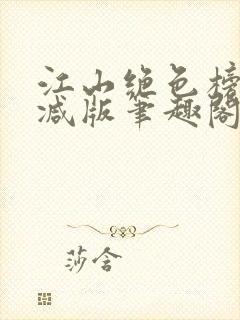 江山绝色榜
减版笔趣阁
莎含